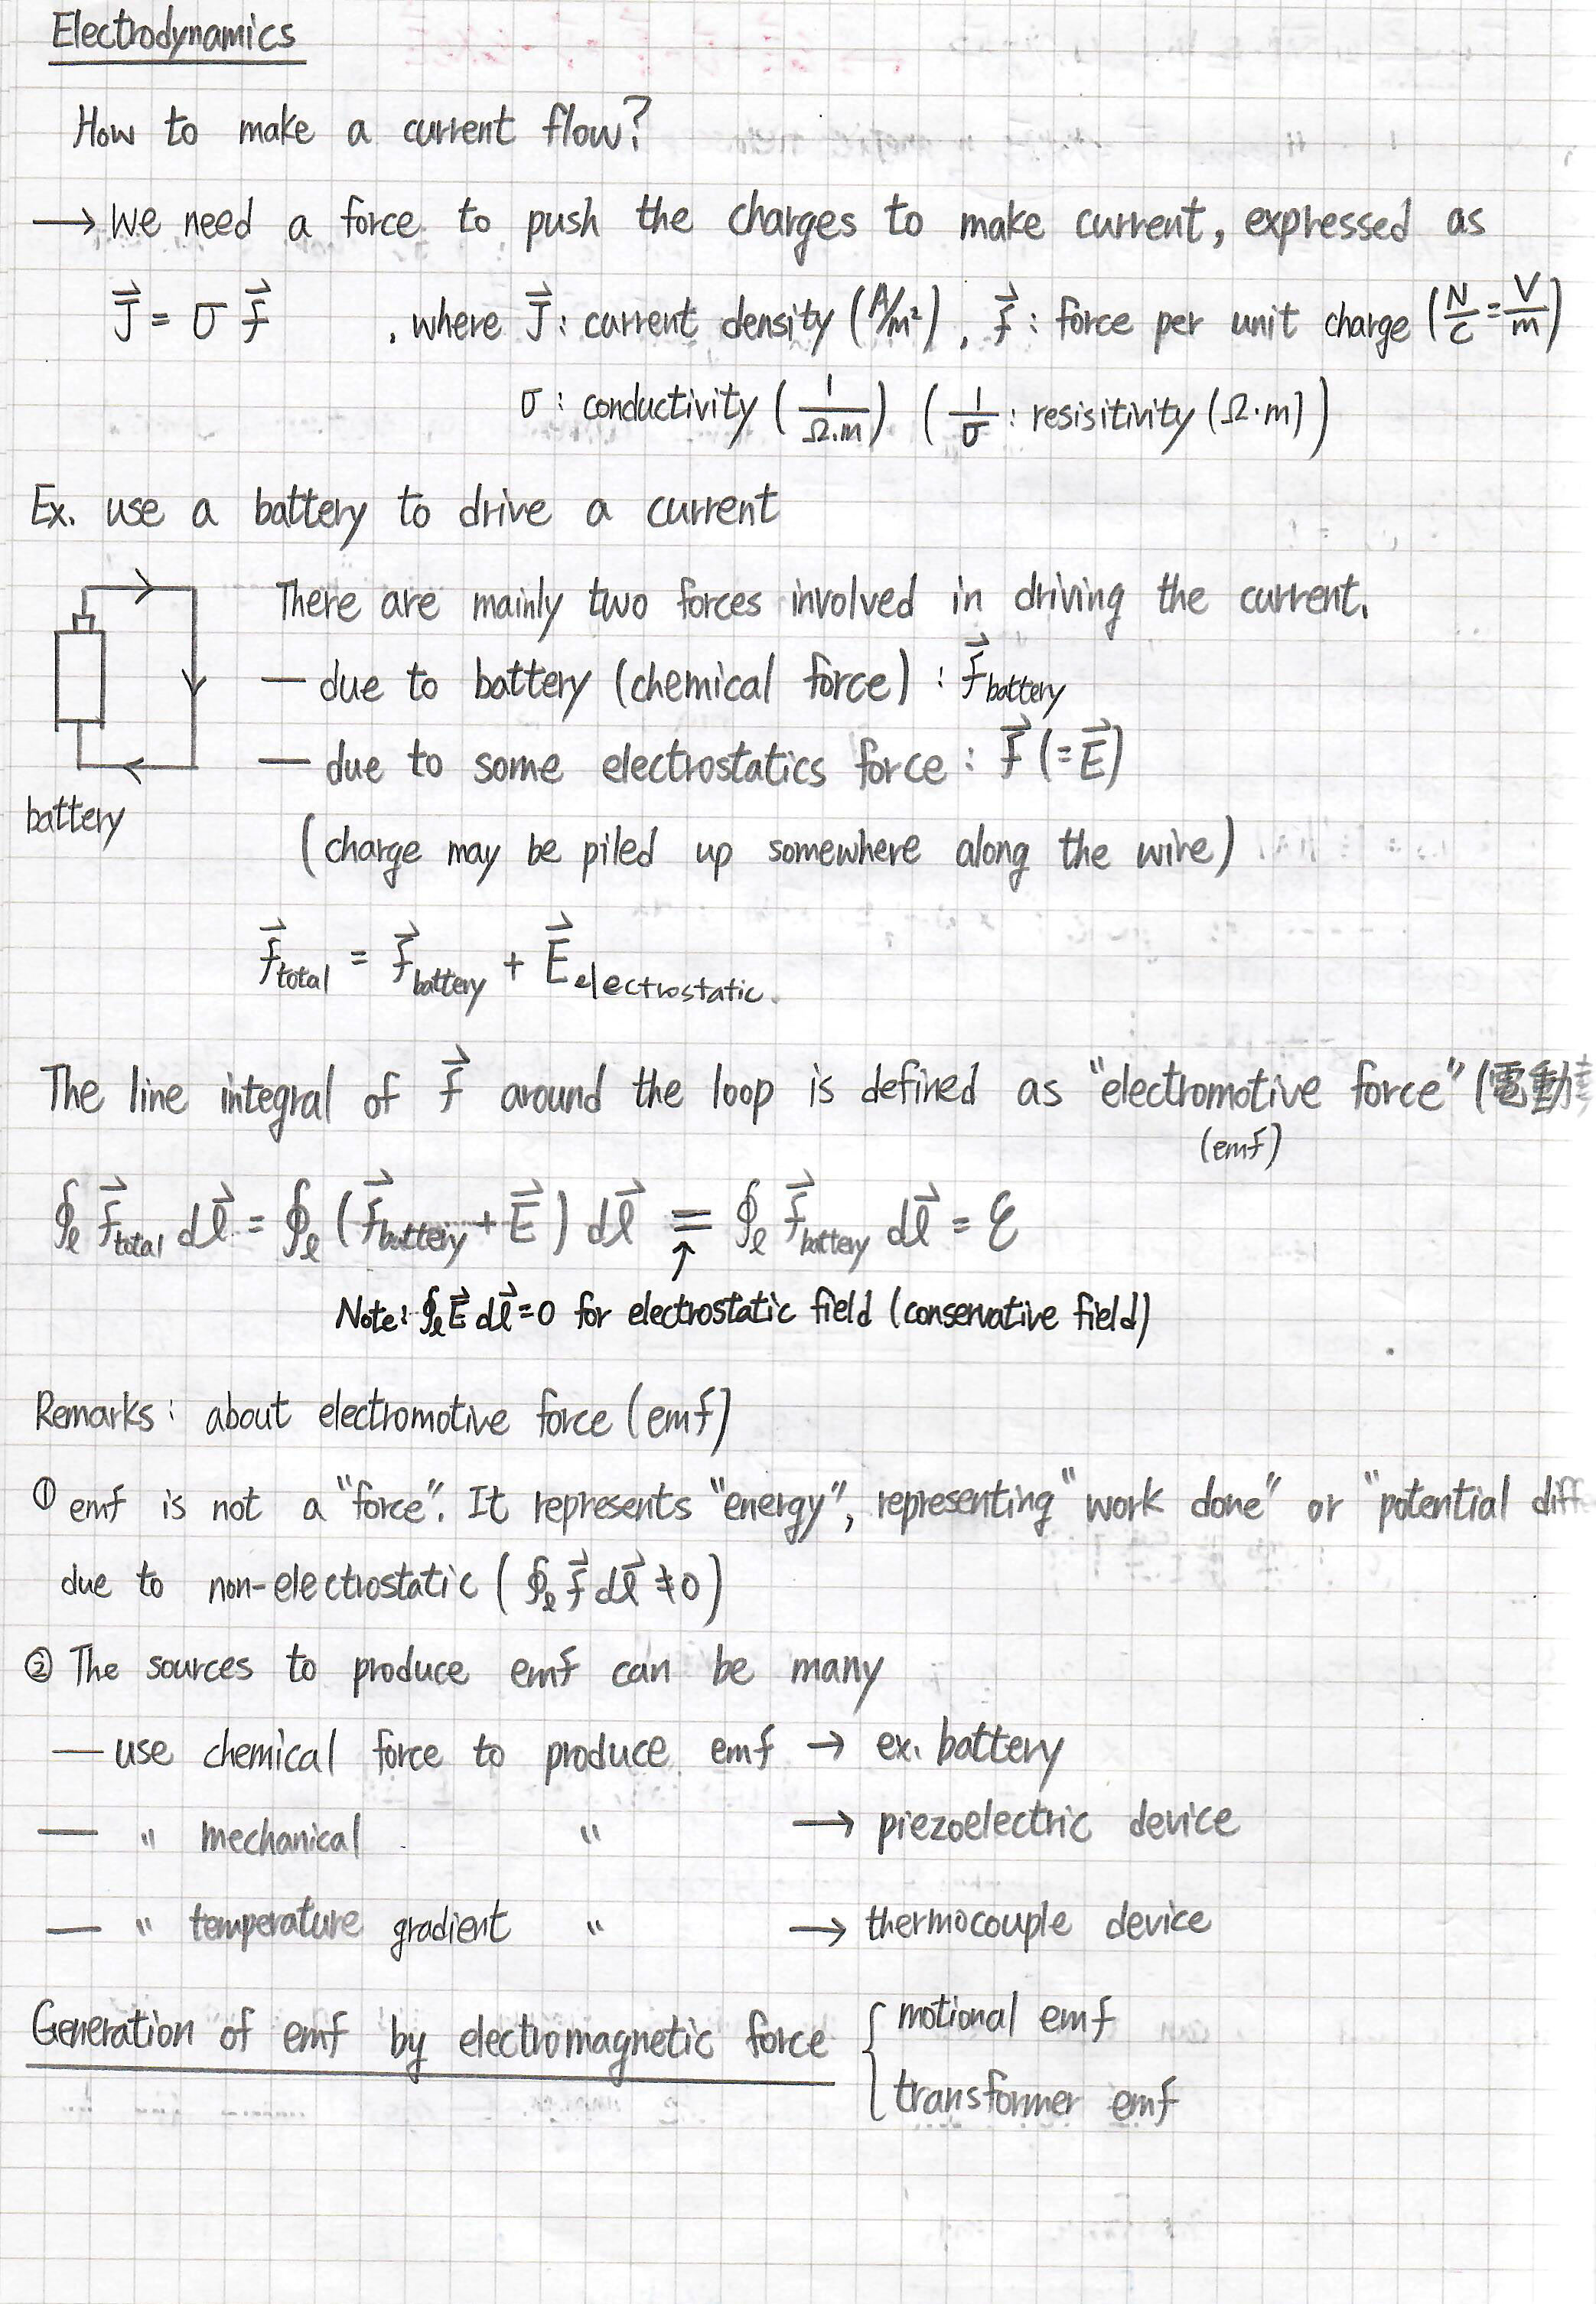 Electrodynamics
How to make a current flow?
→ We need a force to push the charges to make current, expressed as
J⃗ = σ f⃗ , where J⃗ : current density (A/m²), f⃗ : force per unit charge (N/C = V/m)
σ : conductivity (1/Ω.m) (1/σ : resisitivity (Ω·m))
Ex. use a battery to drive a current
There are mainly two forces involved in driving the current.
— due to battery (chemical force) : f⃗battery
— due to some electrostatics force : f⃗ (= E⃗)
battery
(charge may be piled up somewhere along the wire)
f⃗total = f⃗battery + E⃗electrostatic.
The line integral of f⃗ around the loop is defined as "electromotive force" (電動
(emf)
∮ℓ f⃗total dℓ⃗ = ∮ℓ (f⃗battery + E⃗) dℓ⃗ = ∮ℓ f⃗battery dℓ⃗ = ℰ
↑
Note: ∮ℓ E⃗ dℓ⃗ = 0 for electrostatic field (conservative field)
Remarks : about electromotive force (emf)
① emf is not a "force". It represents "energy", representing "work done" or "potential diff
due to non-electrostatic (∮ℓ f⃗ dℓ⃗ ≠ 0)
② The sources to produce emf can be many
— use chemical force to produce emf → ex. battery
— " mechanical " → piezoelectric device
— " temperature gradient " → thermocouple device
Generation of emf by electromagnetic force { motional emf
transformer emf